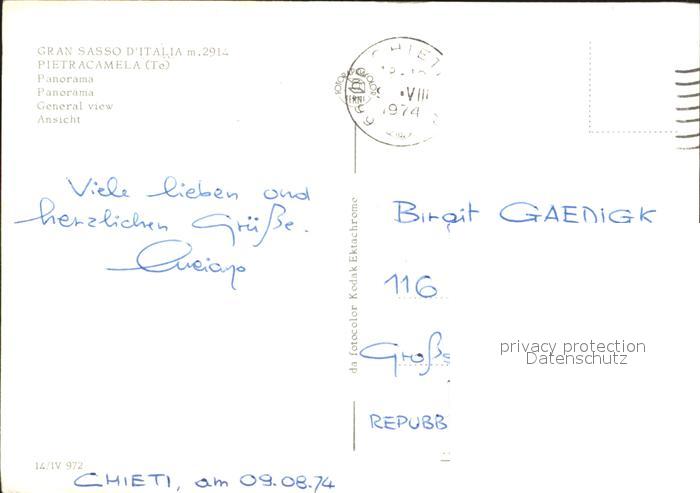 GRAN SASSO D'ITALIA m.2914
PIETRACAMELA (Te)
Panorama
Panorama
General view
Ansicht
CHIETI
VIII
1974
Viele lieben und
herzlichen Grüße.
Luciano
da fotocolor Kodak Ektachrome
Birgit GAEDIGK
116
Große
REPUBB
privacy protection
Datenschutz
14/IV 972
CHIETI, am 09.08.74